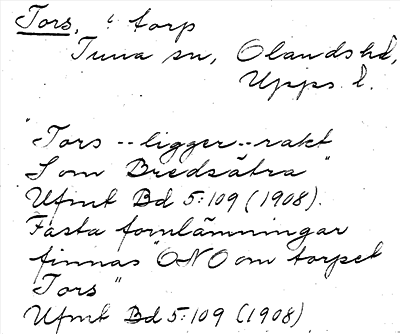 Tors, torp
Tuna sn, Olandshd,
Upps. l.
"Tors -- ligger -- rakt
Som Bredsätra"
Ufmt Bd 5:109 (1908).
Fasta fornlämningar
finnas "ONO om torpet
Tors"
Ufmt Bd 5:109 (1908)